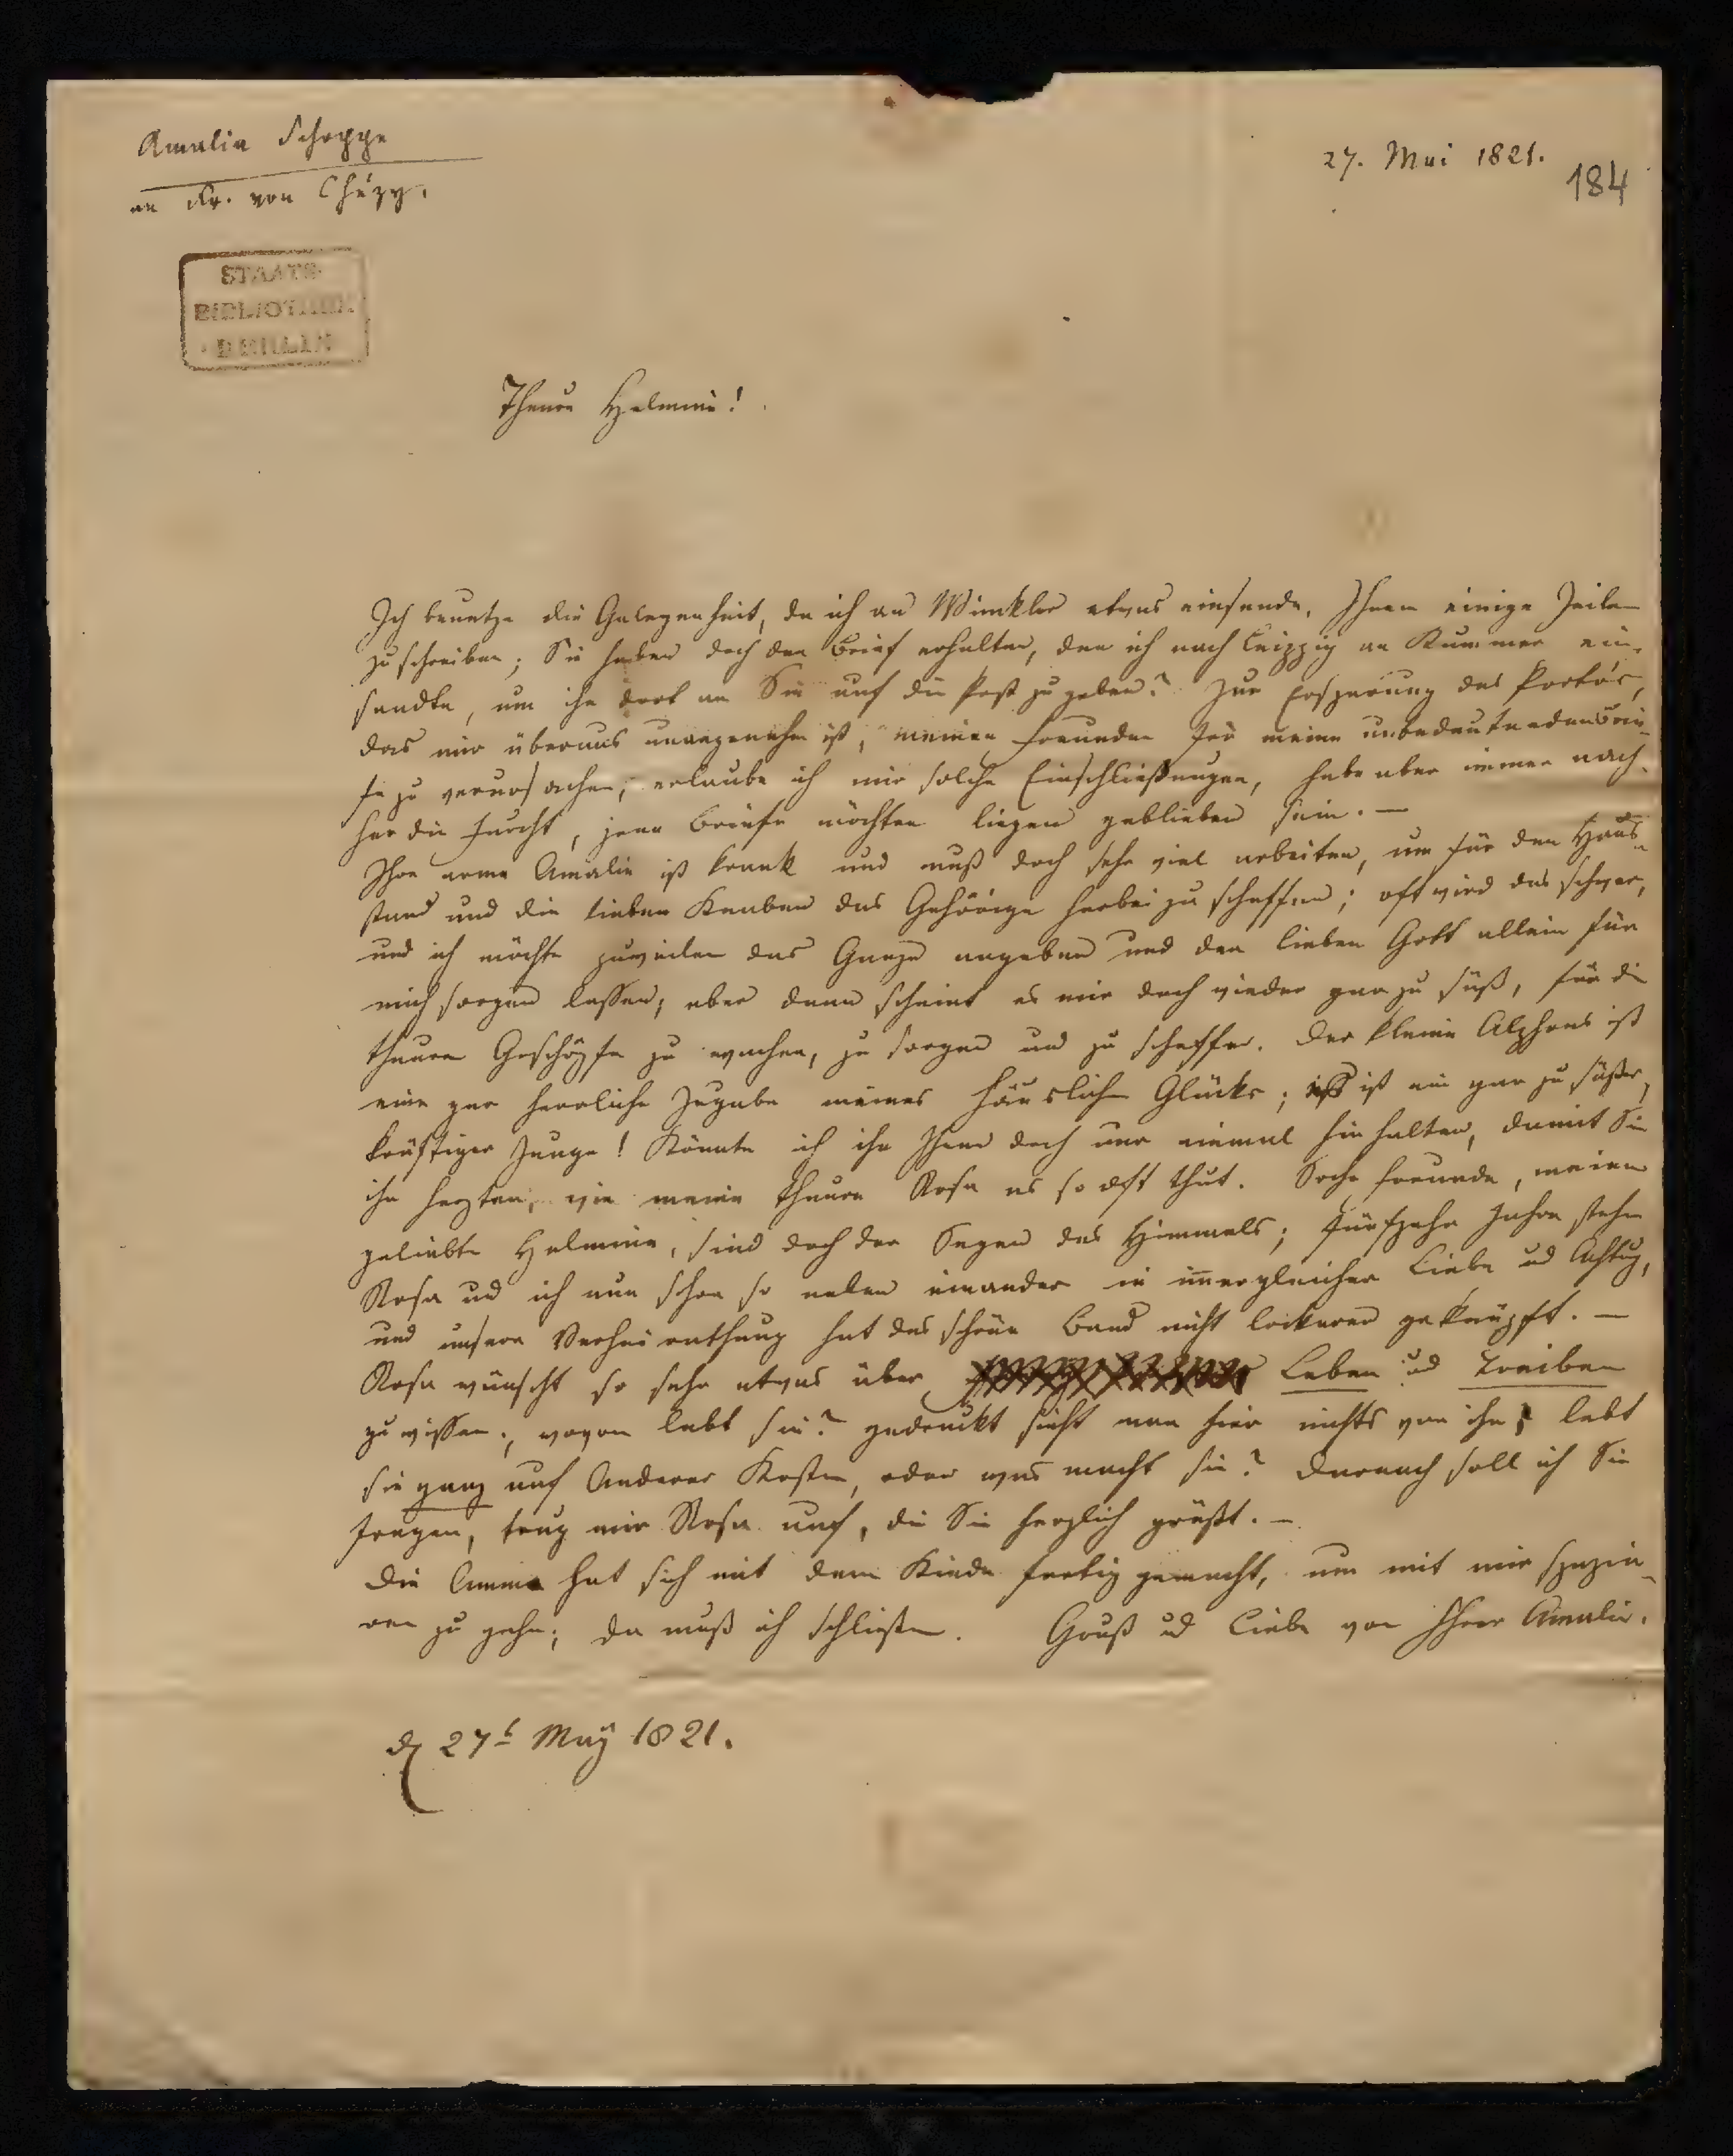 Amalia Schoppe
an Fr. von Chézy.
27. Mai 1821.
184
STAATS-
BIBLIOTHEK
BERLIN
Theure Helmine!
Ich benutze die Gelegenheit, da ich an Winkler etwas einsende, Ihnen einige Zeilen
zu schreiben; Sie haben doch den Brief erhalten, den ich nach Leipzig an Kummer ein-
sandte, um ihn dort an Sie auf die Post zu geben? Zur Ersparung des Porto's,
das mir überaus unangenehm ist, meinen Freunden für meine unbedeutenden Brie-
fe zu verursachen, erlaube ich mir solche Einschließungen, habe aber immer nach-
her die Furcht, jene Briefe möchten liegen geblieben sein. —
Ihre arme Amalie ist krank und muß doch sehr viel arbeiten, um für den Haus-
stand und die lieben Knaben das Gehörige herbei zu schaffen; oft wird das schwer,
und ich möchte zuweilen das Ganze aufgeben und den lieben Gott allein für
mich sorgen lassen; aber dann scheint es mir doch wieder gar zu süß, für die
theuren Geschöpfe zu wachen, zu sorgen und zu schaffen. Der kleine Alphons ist
eine gar herrliche Zugabe meines häuslichen Glücks; ist ein gar zu süßer,
kräftiger Junge! Könnte ich ihn Ihnen doch nur einmal hin halten, damit Sie
ihn herzten, wie meine theure Rosa es so oft thut. Solche Freunde, meine
geliebte Helmine, sind doch der Segen des Himmels; fünfzehn Jahre stehn
Rosa ud ich nun schon so neben einander in immergleicher Liebe ud Achtug,
und unsere Verheirathung hat das schöne Band nicht lockerer geknüpft. —
Rosa wünscht so sehr etwas über Leben ud Treiben
zu wissen; wovon lebt sie? gedruckt sieht man hier nichts von ihr; lebt
sie ganz auf Anderer Kosten, oder was macht sie? Darnach soll ich Sie
fragen, trug mir Rosa auf, die Sie herzlich grüßt. —
Die Amme hat sich mit dem Kinde fertig gemacht, um mit mir spazie-
ren zu gehn; da muß ich schließen. Gruß ud Liebe von Ihrer Amalie.
d 27t May 1821.